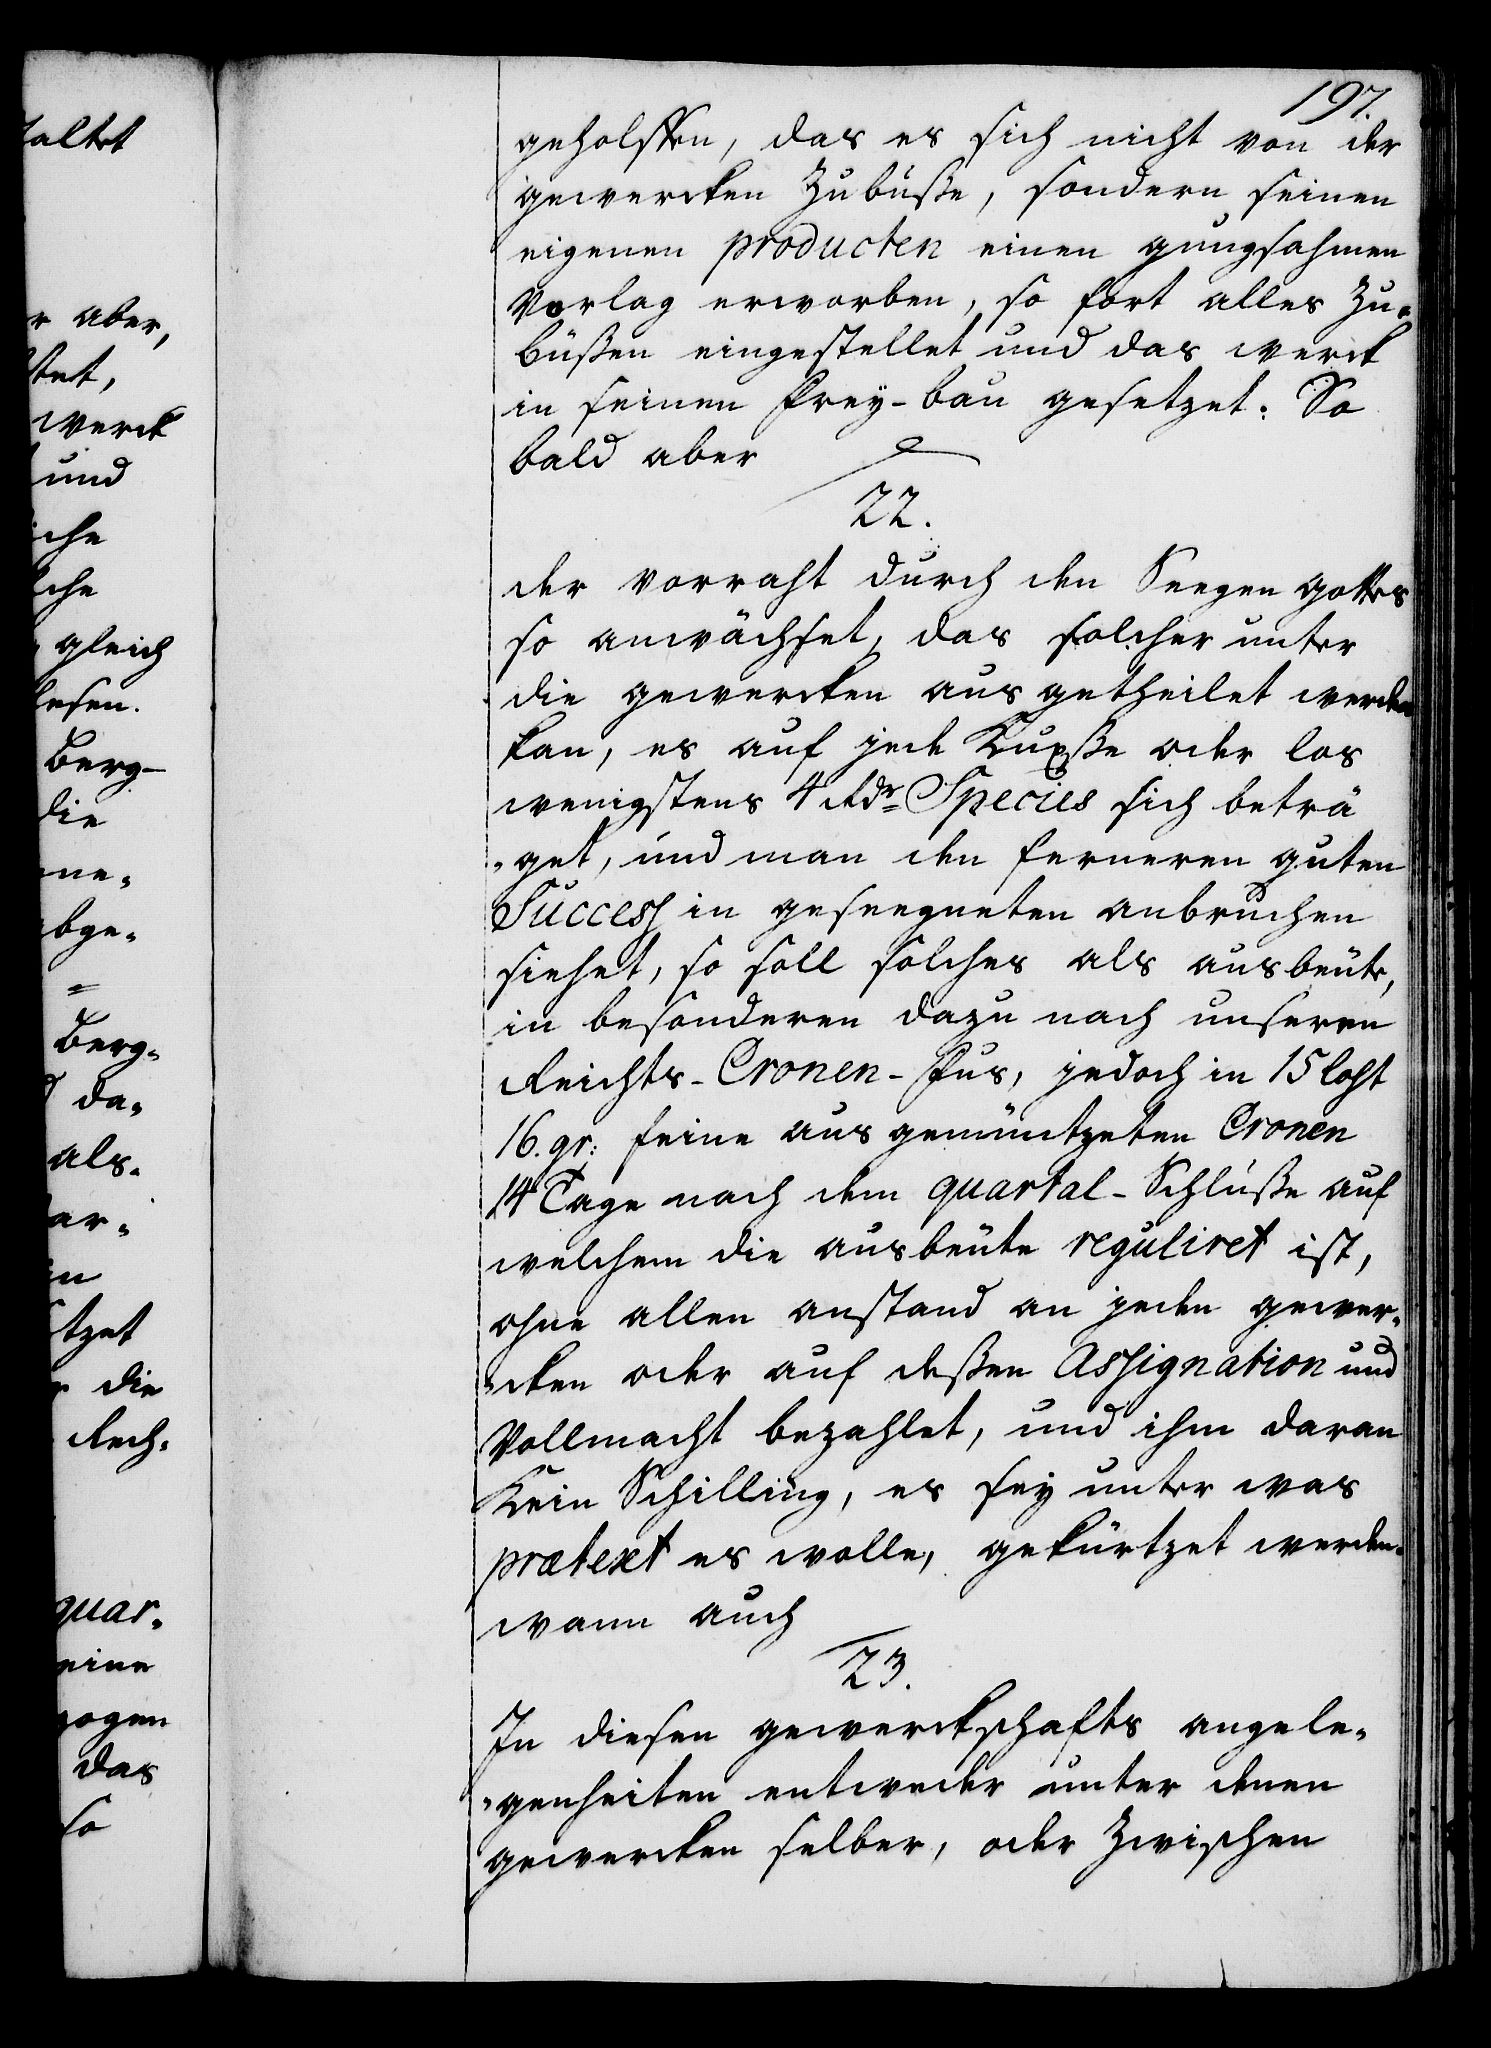 197.
geholffen, das es sich nicht von der
gewercken Zubüße, sondern seinen
eigenen producten einen gungsahmen
Vorlag erworben, so fort alles Zu-
büßen eingestellet und das werck
in seinen Frey-bau gesetzet. So
bald aber
22.
der vorraht durch den Seegen gottes
so anwächset, das solcher unter
die gewercken aus getheilet werden
kan, es auf jede Kuxße oder los
wenigstens 4 Rdr Species sich beträ
-get, und man den ferneren guten
Success in geseegneten anbruchen
siehet, so soll solches als ausbeute,
in besonderen dazu nach unseren
Reichts-Cronen-Fus, jedoch in 15 loht
16. gr: feine aus gemüntzeten Cronen
14 Tage nach dem quartal-Schluße auf
welchem die ausbeute reguliret ist,
ohne allen anstand an jeden gewer-
-cken oder auf deßen Assignation und
Vollmacht bezahlet, und ihm daran
Kein Schilling, es sey unter was
prætext es wolle, gekürtzet werden.
wann auch
23.
In diesen gewerckschafts angele-
-genheiten entweder unter denen
gewercken selber, oder Zwischen
altet
r aber,
tet,
werck
und
che
che
gleich
lesen.
Berg-
die
ne-
bge-
Berg-
da-
als-
ar-
n
tzet
die
Rech-
quar-
eine
zogen
das
so